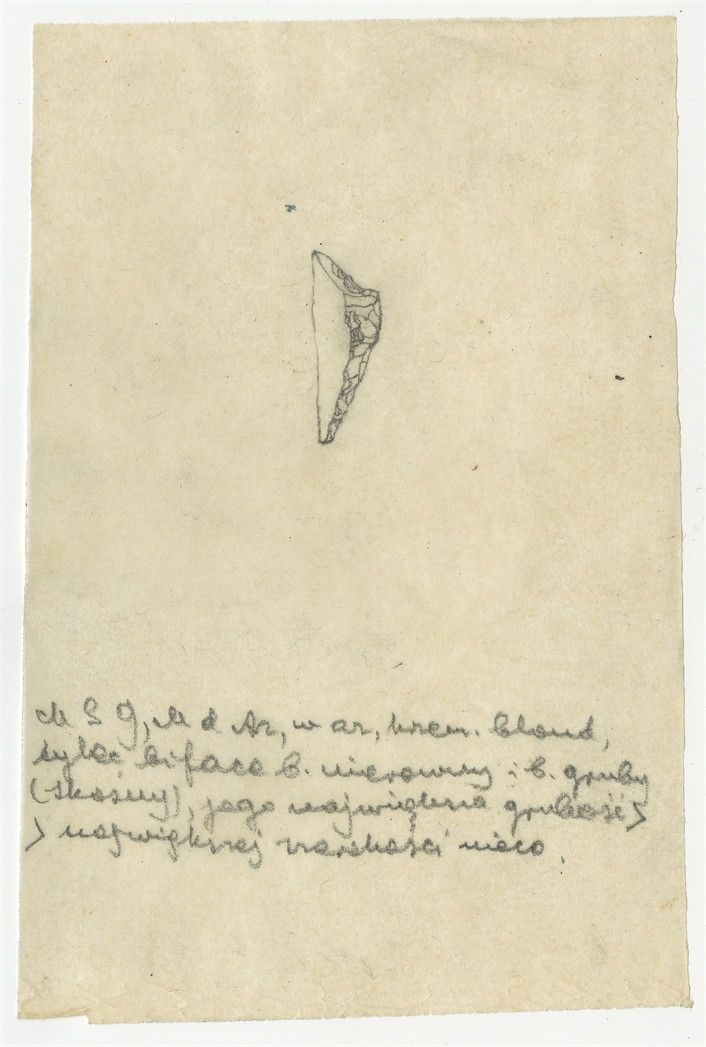 M S G, M d Az, w az, krzem. blond,
tylec biface b. nierówny i b. gruby
(skośny), jego największa grubość >
> największej szerokości nieco.